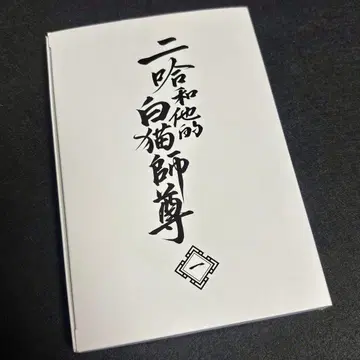 二哈和他的白猫師尊
一